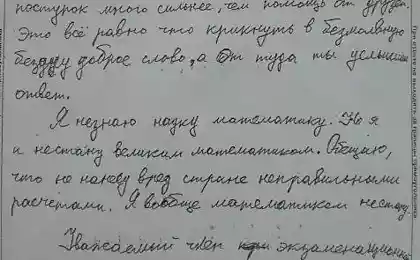 поступок много сильнее, чем помощь от друзей.
Это всё равно что крикнуть в безмолвную
бездну доброе слово, а от туда ты услышишь
ответ.
Я незнаю науку математику. Но я
и нестану великим математиком. Обещаю,
что не нанесу вред стране неправильными
расчетами. Я вообще математиком нестану.
Уважаемый член экзаменационной